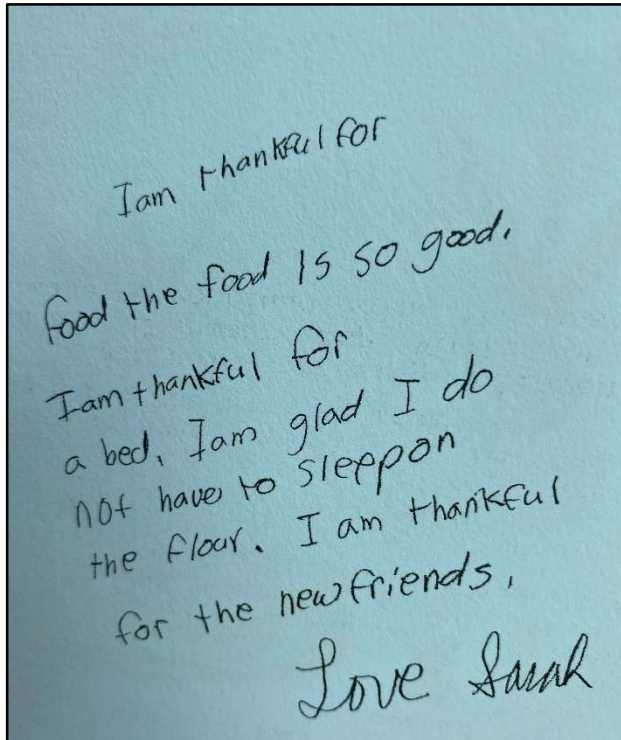 I am thankful for
food the food is so good.
I am thankful for
a bed. I am glad I do
not have to sleep on
the flour. I am thankful
for the new friends.
Love Sarah